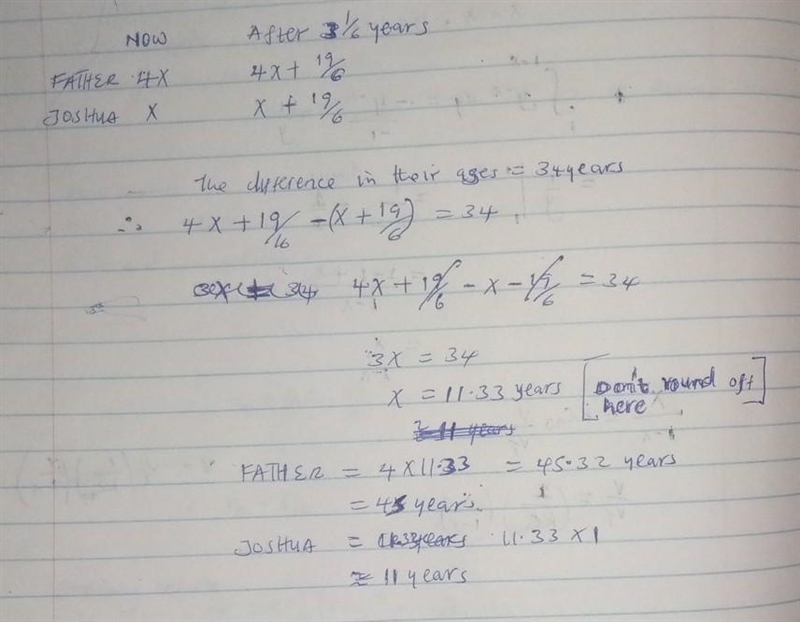 NOW After 3 1/6 years
FATHER 4X 4X + 19/6
JOSHUA X X + 19/6
The difference in their ages = 34 years
∴ 4X + 19/6 - (X + 19/6) = 34
4X + 19/6 - X - 19/6 = 34
3X = 34
X = 11.33 years [Don't round off
here]
≈ 11 years
FATHER = 4 X 11.33 = 45.32 years
= 45 years.
JOSHUA = 11.33 years 11.33 X 1
≈ 11 years